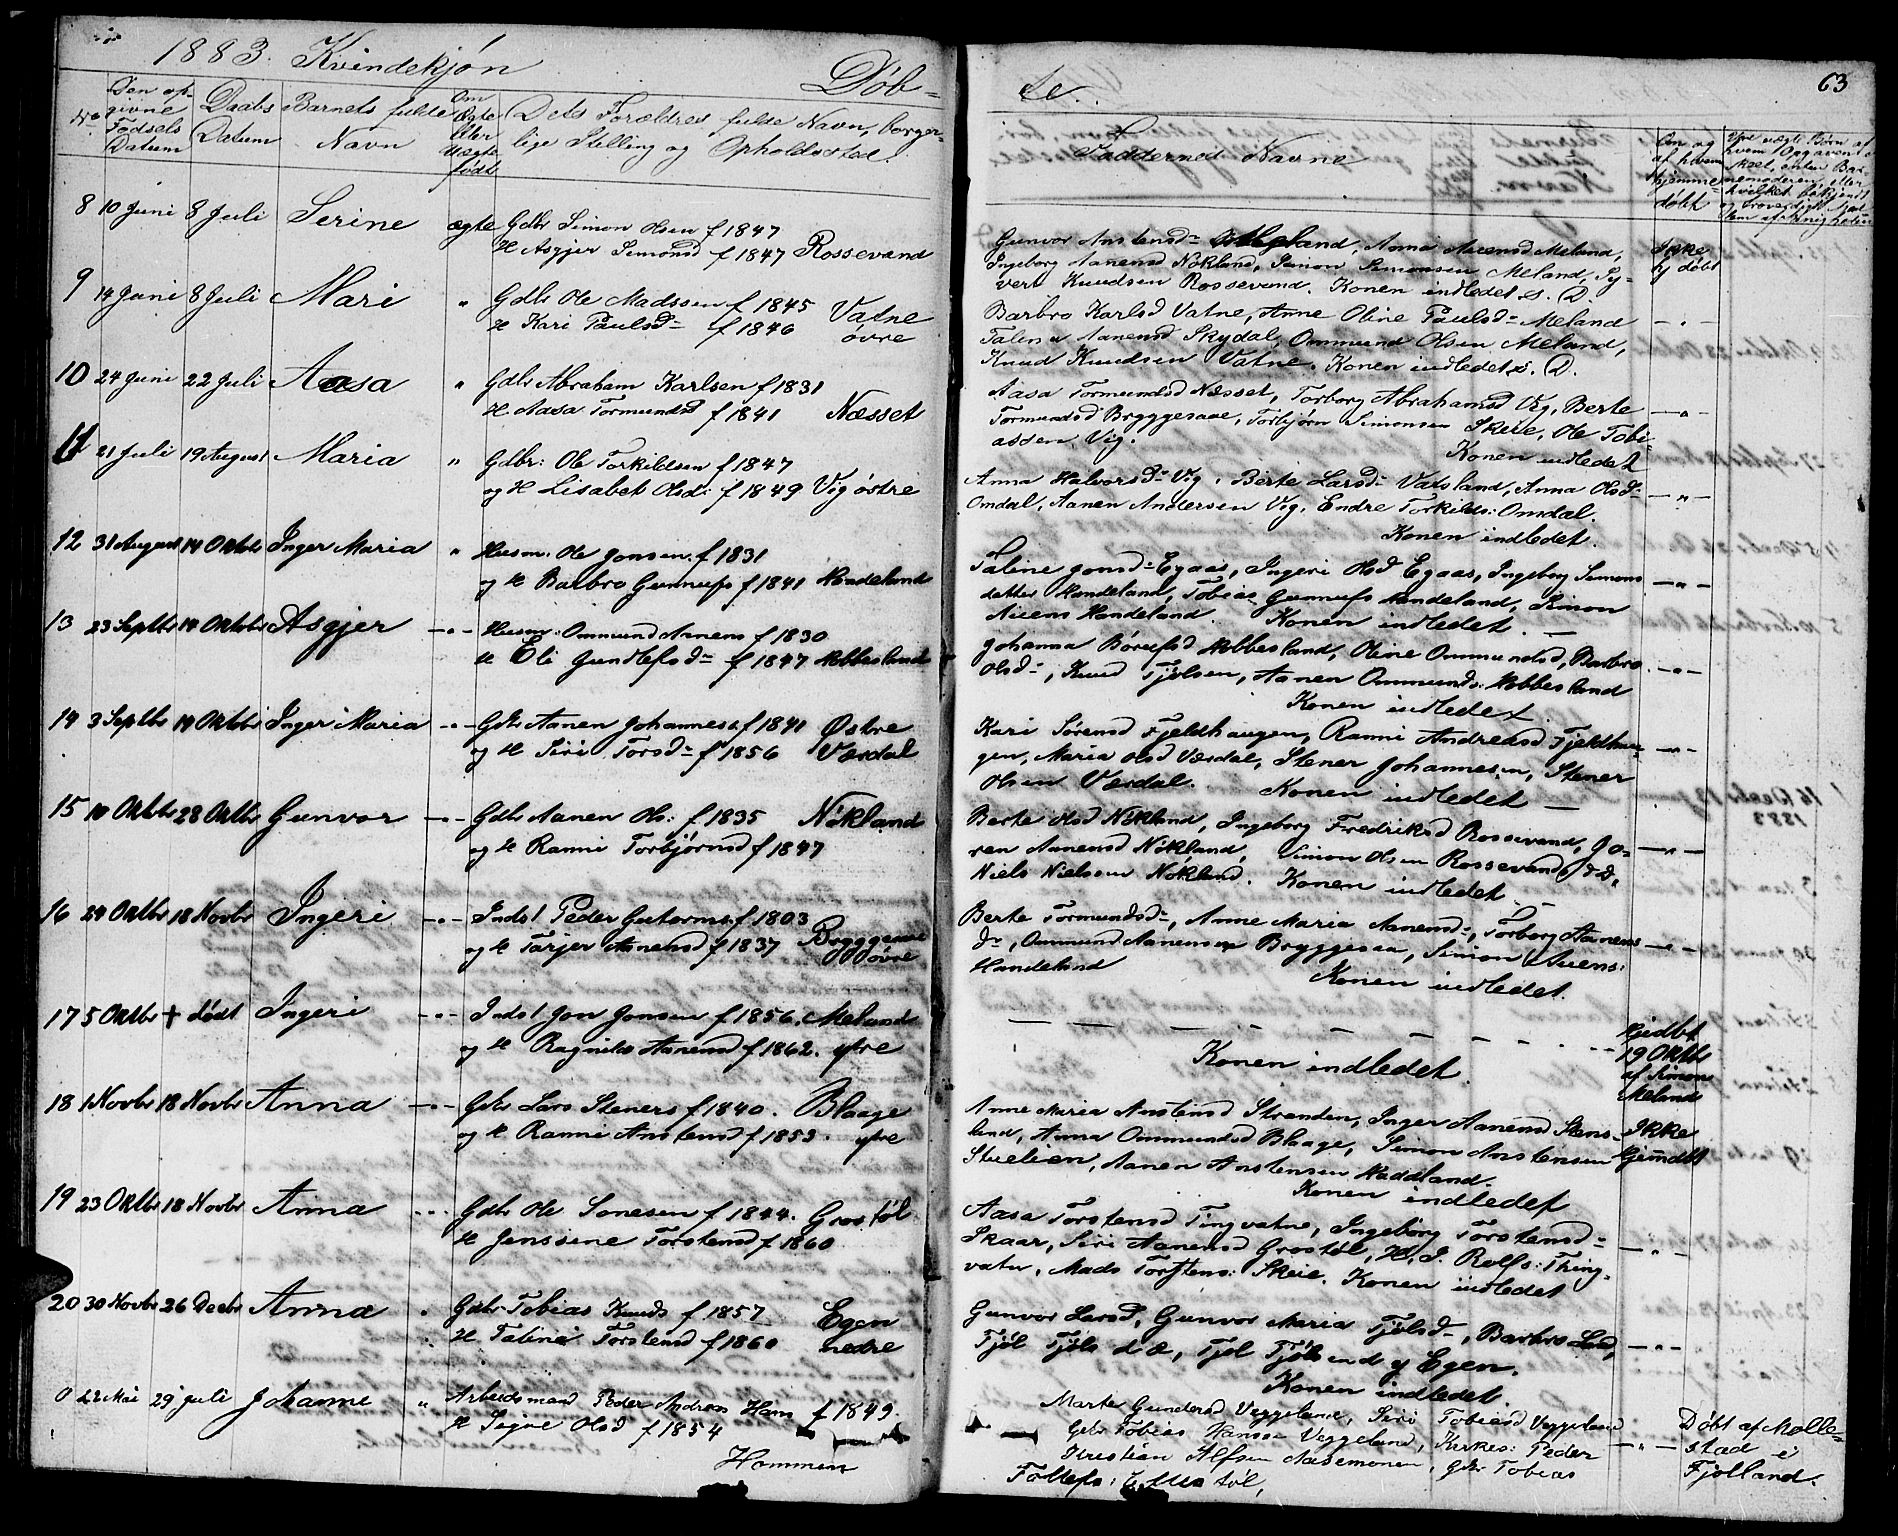 1883. Kvindekjøn
Døb=
No
Den op-
givne
Fødsels
Datum
Daabs
Datum
Barnets fulde
Navn
Om
Ægte
eller
Uægte
født
Dets Forældres fulde Navn, borger-
lige Stilling og Opholdssted.
8 10 Juni 8 Juli Serine ægte Gdbr Simon Olsen f 1847
H Asgjer Simonsd f 1847 Rossevand
9 14 Juni 8 Juli Mari " Gdbr Ole Madssen f 1845 Vatne
H Kari Paulsd f 1846 øvre
10 24 Juni 22 Juli Aasa " Gdbr Abraham Karlsen f 1831
H Aasa Tormundsd f 1841 Næsset
11 21 Juli 19 August Maria " Gdbr: Ole Torkildsen f 1847
og H Lisabet Olsd: f 1849 Vig østre
12 31 August 14 Oktbr Inger Maria " Husm: Ole Jonsen f 1831
og H Barbro Gunnufs f 1841 Handeland
13 23 Septbr 14 Oktobr Asgjer -"- Husm: Ommund Aanens f 1830
H Eli Gundlefsd f 1847 Mobbesland
14 3 Septbr 14 Oktbr Inger Maria -"- Gdbr Aanen Johannes: f 1841 Østre
og H Siri Torsd f 1856 Værdal
15 10 Oktbr 28 Oktbr Gunvor -"- Gdbr Aanen Ols: f 1835 Nökland
og H Ranni Torbjørnsd f 1847
16 24 Oktbr 18 Novbr Ingeri -"- Inds! Peder Gutorms: f 1803
og H Tarjer Aanensd f 1837 Bryggesaae øvre
17 5 Oktbr + død Ingeri -"- Inds! Jon Jonsen f 1856. Meland
og H Ragnild Aanensd f 1862. ytre
18 1 Novbr 18 Novbr Anna -"- Gdbr Lars Steners f 1840. Blaage
og H Ranni Anstensd f 1853. ytre
19 23 Oktbr 18 Novbr Anna Gdbr Ole Sonesen f 1844. Grostøl
H Jenssine Torstensd f 1860
20 30 Novbr 26 Decbr Anna " Gdbr Tobias Knuds f 1857 Egen
H Taline Torstensd f 1860 nedre
0 22 Mai 29 Juli Johanne " Arbeidsmand Peder Andreas Hans f 1849.
H Signe Olsd f 1854
Hommen
te.
63
Faddernes Navne
Om og
af hvem
hjemme-
døbt
Gunvor Anstensd Meland, Anna Aicensd Meland,
Ingeborg Aanensd Nökland, Simon Simonsen Meland, Sy-
vert Knudsen Rossevand. Konen indledet s. D.
Ikke
hj døbt
Barbro Karlsd Vatne, Anne Oline Paulsd Meland
Talena Aanensd Skydal, Ommund Olsen Meland,
Knud Knudsen Vatne. Konen indledet s. D.
-"-
Aasa Tormundsd Næsset, Torborg Abrahamsd Vig, Berte
Tormundsd Bryggesaae, Torbjørn Simonsen Skeie, Ole Tobi-
assen Vig.
Konen indledet
-"-
Anna Halvorsd Vig, Berte Larsd Vatsland, Anna Olsd
Omdal, Aanen Andersen Vig, Endre Torkilds: Omdal.
Konen indledet.
-"-
Taline Jonsd Egaas, Ingeri Olsd Egaas, Ingeborg Simons
datter Handeland, Tobias Gunnufs Handeland, Simon
Aicens Handeland. Konen indledet.
-"-
Johanna Børufsd Mobbesland, Oline Ommundsd, Barbro
Olsd, Knud Tjølsen, Aanen Ommunds: Mobbesland
Konen indledet
-"-
Kari Sørensd Fjeldhaugen, Ranni Andreasd Fjeldhau-
gen, Maria Olsd Værdal, Stener Johannesen, Stener
Olsen Værdal. Konen indledet
-"-
Berte Olsd Nökland, Ingeborg Fredriksd Rossevand, Go-
ren Aanensd Nökland, Simon Olsen Rossevand,
Niels Nielsen Nökland. Konen indledet
-"-
Berte Tormundsd, Anne Maria Aanensd, Torborg Aanens
d, Ommund Aanensen Bryggesaa, Simon Aicens:
Handeland Konen indledet.
-"-
Konen indledet
Hjedbt
19 Oktbr
af Simon
Meland
Anne Maria Anstensd Stranden, Inger Aanensd Stens-
land, Anna Ommundsd Blaage, Simon Anstensen
Stuelien, Aanen Anstensen Haddland.
Konen indledet
Ikke
hjemdbt
Aasa Torstensd Tingvatne, Ingeborg Torstensd
Skaar, Siri Aanensd Grostøl, H. J. Rolfs: Thing-
vatn, Mads Torstens: Skeie. Konen indledet
-"-
Gunvor Larsd, Gunvor Maria Tjølsd, Barbro Larsd,
Tjøl Tjøls, Tjøl Egen.
Konen indledet
-"-
Marte Gundersd Veggeland, Siri Tobiasd Veggeland
Gdbr Tobias Hanssen Veggeland, Kirkes: Peder
Kristian Alfsen Aasemonen, Gdbr Tobias
Tollefs:
-"-
Døbt af Molle-
stad i
Fjotland.